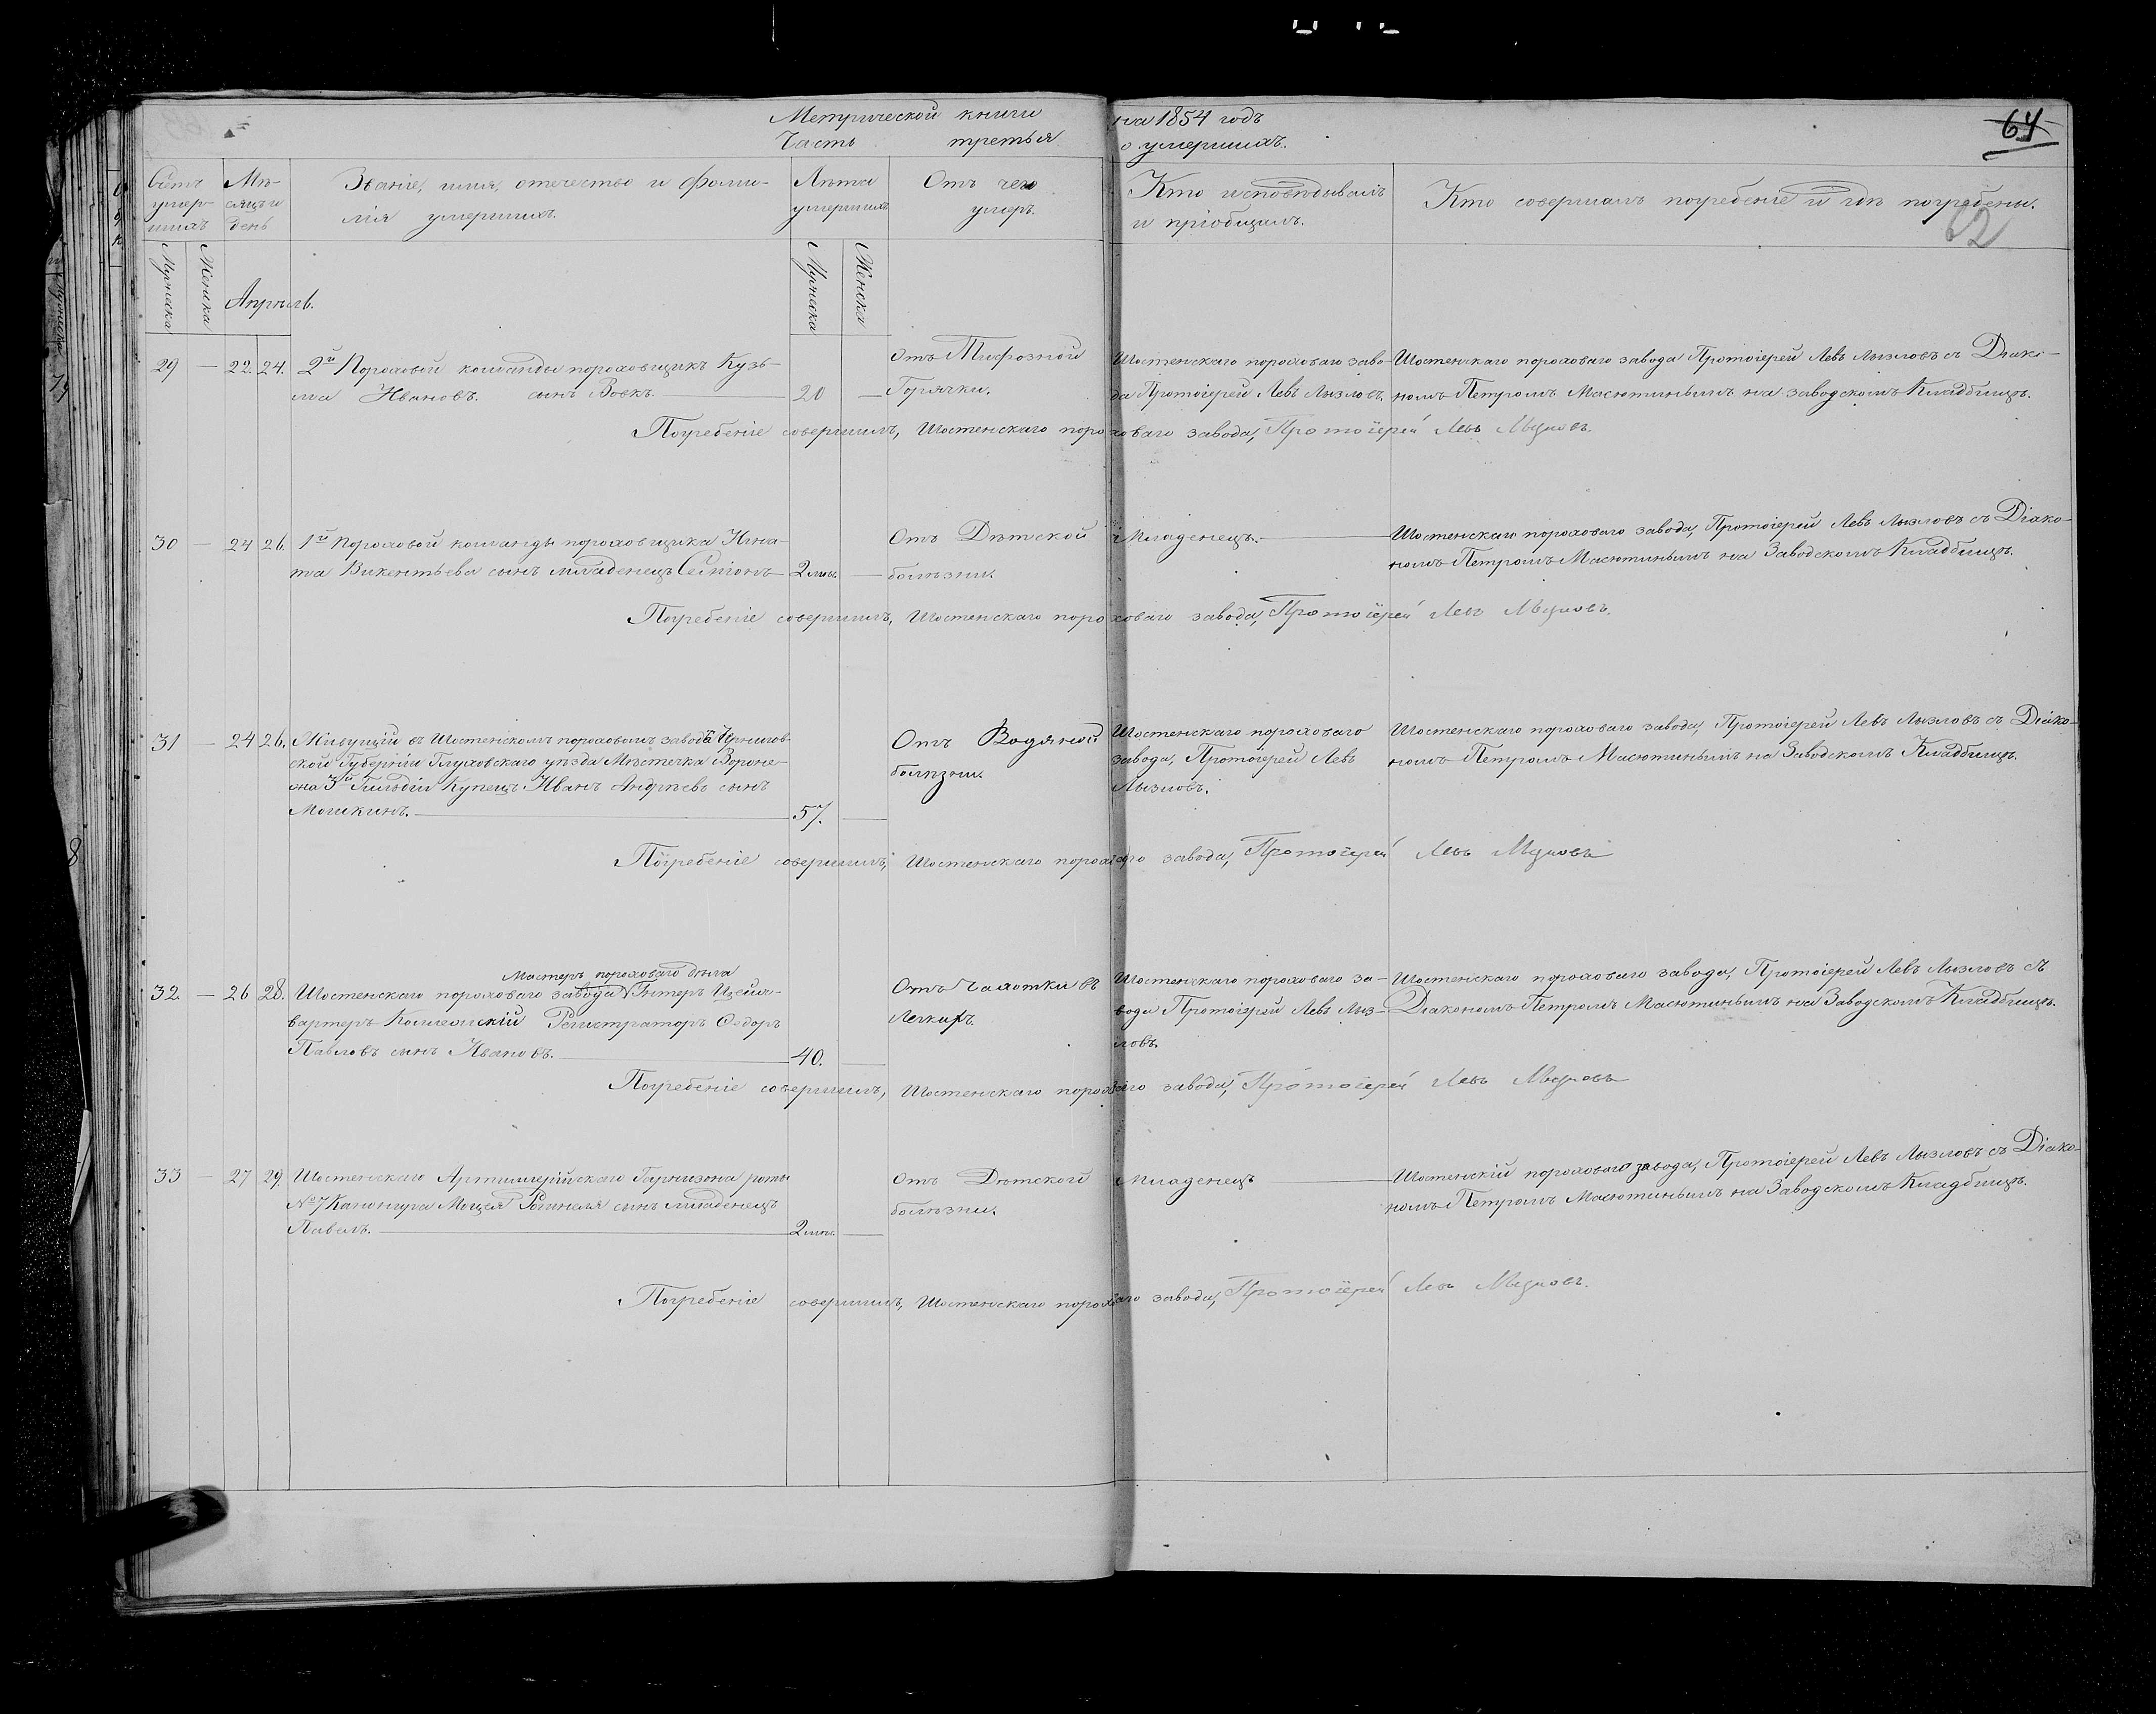 Метрической книги на 1854 годъ
Часть третья о умершихъ.
64
62
Счетъ умер-шихъ
Мѣ-сяцъ и день
Званіе, имя, отечество и фами-
лія умершихъ.
Лѣта умершихъ
Отъ чего умеръ.
Кто исповѣдывалъ
и пріобщалъ.
Кто совершалъ погребеніе и гдѣ погребены.
Мужеска
Женска
Апрѣль.
Мужеска
Женска
29 — 22. 24. 2й Пороховой команды пороховщикъ Кузь-
ма Ивановъ сынъ Вовкъ. 20 —
Отъ Тифозной
Горячки.
Шостенскаго пороховаго заво-
да Протоіерей Левъ Лызловъ.
Шостенскаго пороховаго завода Протоіерей Левъ Лызловъ съ Діако-
номъ Петромъ Масютинымъ на заводскомъ Кладбищѣ.
Погребеніе совершилъ, Шостенскаго пороховаго завода, Протоіерей Левъ Лызловъ.
30 — 24 26. 1й Пороховой команды пороховщика Игна-
та Викентьева сынъ младенецъ Семіонъ 2 мѣс. —
Отъ Дѣтской
болѣзни.
Младенецъ.
Шостенскаго пороховаго завода, Протоіерей Левъ Лызловъ съ Діако-
номъ Петромъ Масютинымъ на Заводскомъ Кладбищѣ.
Погребеніе совершилъ, Шостенскаго пороховаго завода, Протоіерей Левъ Лызловъ.
31 — 24 26. Живущій въ Шостенскомъ пороховомъ заводѣ Чернигов-
ской Губерніи Глуховскаго уѣзда Мѣстечка Вороне-
жа 3й Гильдіи Купецъ Иванъ Андрѣевъ сынъ
Мошкинъ. 57. —
Отъ Водяной
болѣзни.
Шостенскаго пороховаго
завода, Протоіерей Левъ
Лызловъ.
Шостенскаго пороховаго завода, Протоіерей Левъ Лызловъ съ Діако-
номъ Петромъ Масютинымъ на Заводскомъ Кладбищѣ.
Погребеніе совершилъ, Шостенскаго пороховаго завода, Протоіерей Левъ Лызловъ
Мастеръ пороховаго дѣла
32. — 26 28. Шостенскаго пороховаго завода Унтеръ Цейх-
вартеръ Коллежскій Регистраторъ Федоръ
Павловъ сынъ Ивановъ. 40. —
Отъ Чахотки въ
Легкихъ.
Шостенскаго пороховаго за-
вода Протоіерей Левъ Лыз-
ловъ.
Шостенскаго пороховаго завода, Протоіерей Левъ Лызловъ съ
Діакономъ Петромъ Масютинымъ на Заводскомъ Кладбищѣ.
Погребеніе совершилъ, Шостенскаго пороховаго завода, Протоіерей Левъ Лызловъ
33 — 27 29. Шостенскаго Артиллерійскаго Гарнизона роты
№ 7 Канонира сынъ младенецъ
Павелъ. 2 мѣс. —
Отъ Дѣтской
болѣзни.
Младенецъ
Шостенскій пороховаго завода, Протоіерей Левъ Лызловъ съ Діако-
номъ Петромъ Масютинымъ на Заводскомъ Кладбищѣ.
Погребеніе совершилъ, Шостенскаго пороховаго завода, Протоіерей Левъ Лызловъ.